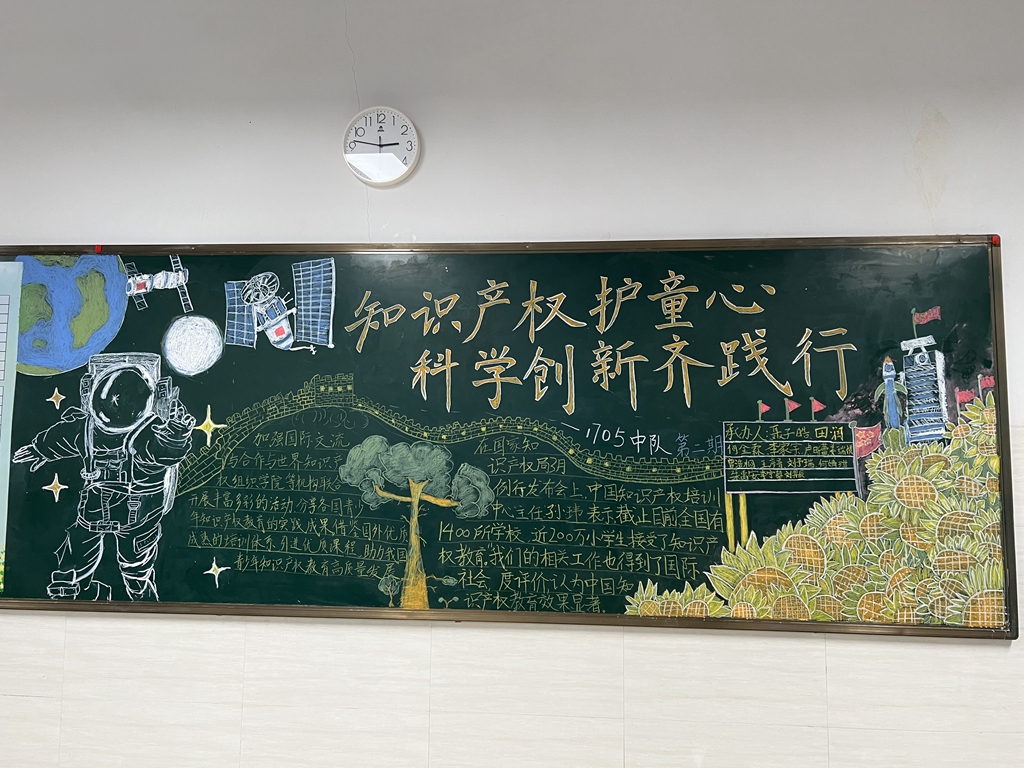 12
11
1
10
2
9
3
4
知识产权护童心
科学创新齐践行
一1705中队 第二期
加强国际交流
与合作与世界知识产
权组织学院等机构联合
开展丰富多彩的活动,分享各国青少
年知识产权教育的实践成果借鉴国外优质
成熟的培训体系,引进优质课程,助力我国
青少年知识产权教育高质量发展
在国家知
识产权局3月
例行发布会上,中国知识产权培训
中心主任孙玮表示,截止目前全国有
1400所学校,近200万小学生接受了知识产
权教育,我们的相关工作也得到了国际
社会 度评价,认为中国知
识产权教育效果显著
承办人: